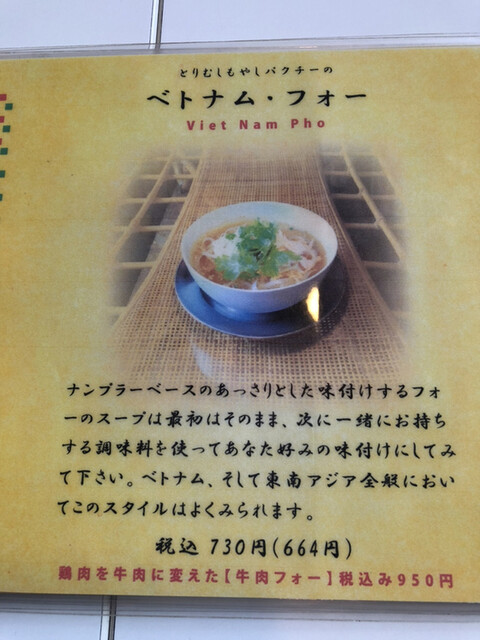 とりむしもやしパクチーの
ベトナム・フォー
Viet Nam Pho
ナンプラーベースのあっさりとした味付けするフォ
ーのスープは最初はそのまま、次に一緒にお持ち
する調味料を使ってあなた好みの味付けにしてみ
て下さい。ベトナム、そして東南アジア全般におい
てこのスタイルはよくみられます。
税込 730円(664円)
鶏肉を牛肉に変えた【牛肉フォー】税込み950円